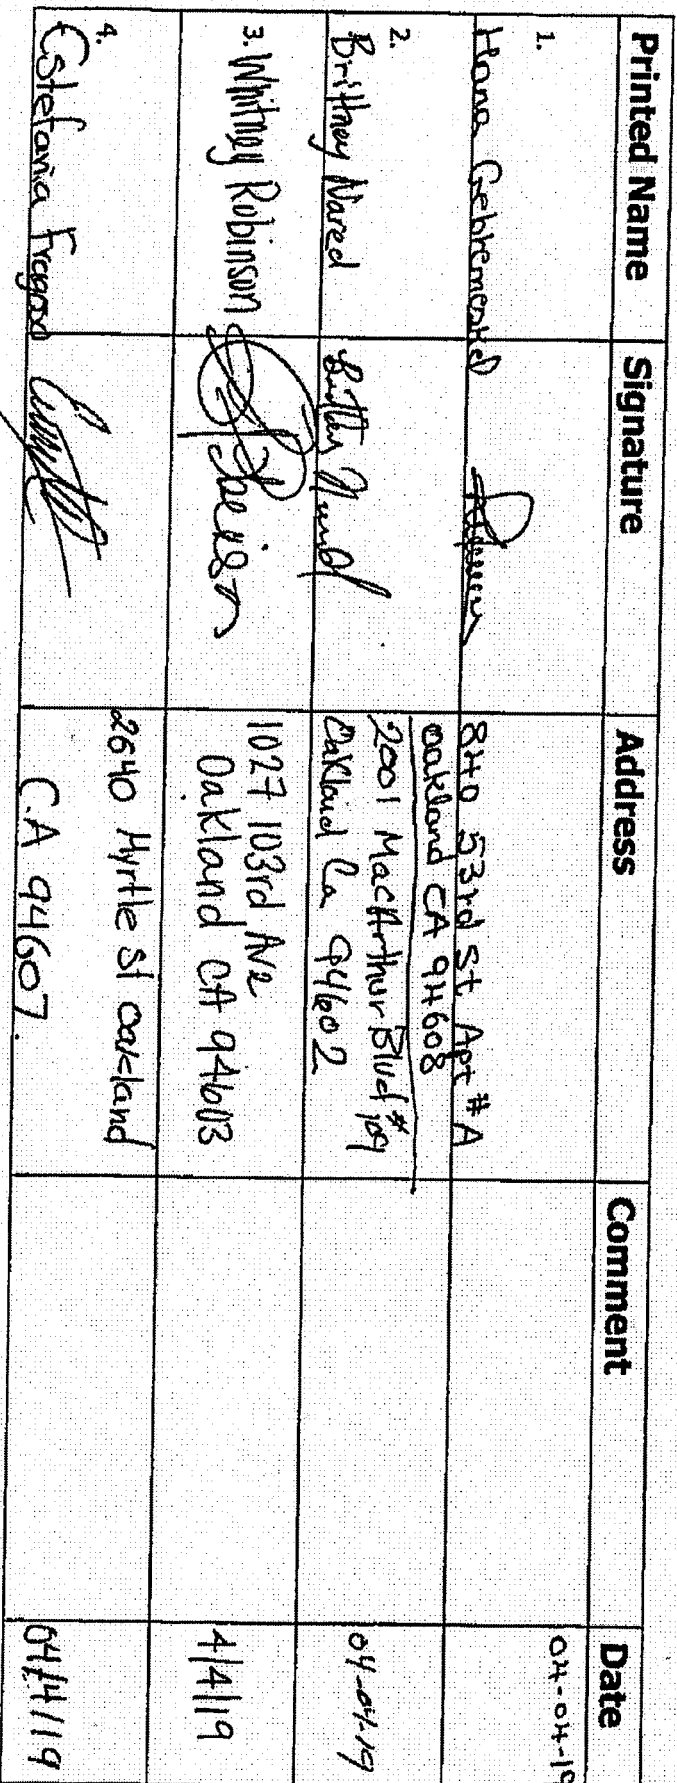 Printed Name Signature Address Comment Date
1.
Hana 840 53rd St. Apt # A
Oakland CA 94608
04-04-19
2.
Brittney Nared
2001 MacArthur Blvd # 109
Oakland Ca 94602
04-04-19
3. Whitney Robinson
1027 103rd Ave
Oakland CA 94603
4/4/19
4.
Estefania Fragoso
2640 Myrtle St Oakland
C.A 94607.
04/4/19